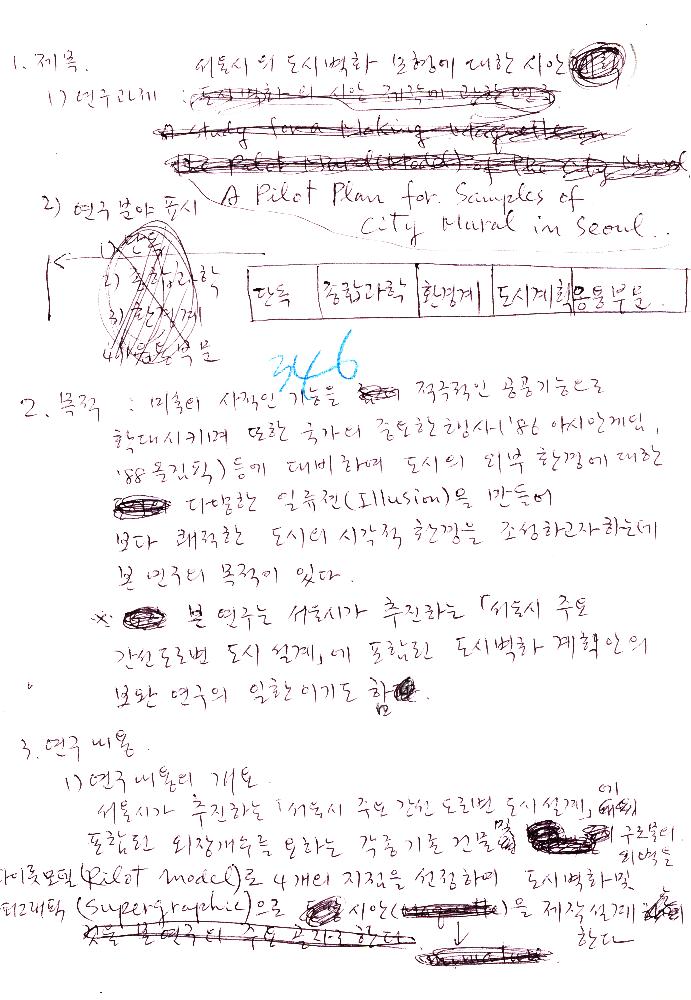 1. 제목.   서울시의 도시벽화 모형에 대한 시안
1) 연구과제 : 도시벽화의 시안 제작에 관한 연구
A study for a Making Maquette
The Pilot Mural(Model) of the City Mural
A Pilot Plan for Samples of
City Mural in Seoul..
2) 연구분야 표시
1) 단독
2) 종합과학
3) 환경계
4) 응용부문
단독 종합과학 환경계 도시계획 응용부문
346
2. 목적 : 미술의 사적인 기능을 적극적인 공공기능으로
확대시키며 또한 국가의 중요한 행사('86 아시안게임,
'88 올림픽) 등에 대비하여 도시의 외부 환경에 대한
다양한 일류젼(Illusion)을 만들어
보다 쾌적한 도시의 시각적 환경을 조성하고자하는데
본 연구의 목적이 있다.
※ 본 연구는 서울시가 추진하는 「서울시 주요
간선도로변 도시설계」에 포함된 도시벽화 계획안의
보완 연구의 일환이기도 함.
3. 연구내용.
1) 연구내용의 개요.
서울시가 추진하는 「서울시 주요 간선도로변 도시설계」에
포함된 외장개수를 요하는 각종 기존 건물 및 구조물의
외벽을
파이롯모델(Pilot model)로 4개의 지점을 선정하여 도시벽화 및
퍼그래픽(Supergraphic)으로 시안(Maquette)을 제작설계
것을 본 연구의 주요 골자로 한다 한다